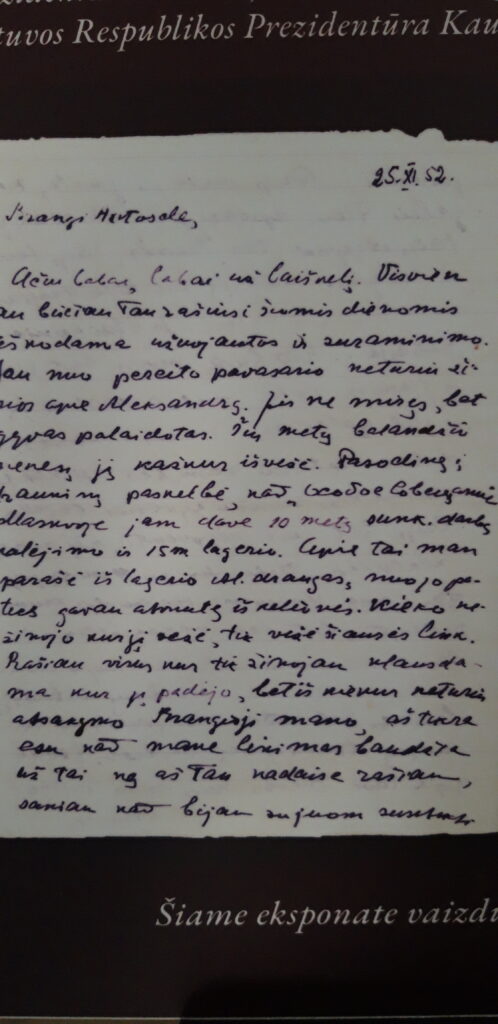 tuvos Respublikos Prezidentūra Kau
25.XI.52.
Brangi
Ačiū labai, labai už laiškelį. Visvien
au būčiau Tau rašiusi šiomis dienomis
eškodama užuojautos ir suraminimo.
Jau nuo pereito pavasario neturiu ži-
nios apie Aleksandrą. Jis ne miręs, bet
gyvas palaidotas. Šių metų balandžio
mėnesį jį kažkur išvežė. Pasodinę į
traukinį paskelbė, kad
Maskvoje jam davė 10 metų sunk. darbų
kalėjimo ir 15 m lagerio. Apie tai man
parašė iš lagerio draugas, nuo jo pa-
ties gavau atvirutę iš kelionės. Kieno ne-
žinojo kur jį vežė, tik vežė šiaurės link.
Rašiau visur kur tik žinojau klausda-
ma kur jį padėjo, bet iš niekur neturiu
atsakymo. Brangioji mano, aš tikra
esu kad mane likimas baudžia
už tai ką aš Tau kadaise rašiau,
sakiau kad bijau su juom susitikti
Šiame eksponate vaizdu